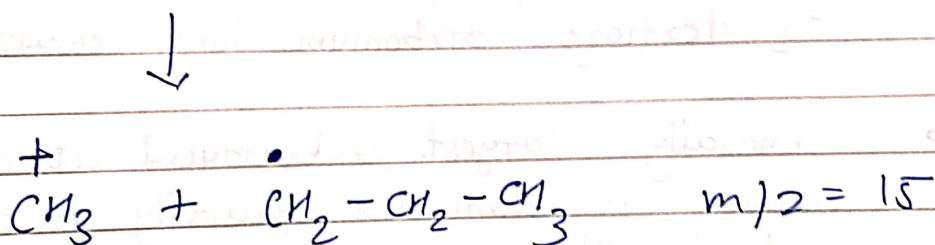 ↓
+ •
CH3 + CH2 - CH2 - CH3 m/z = 15